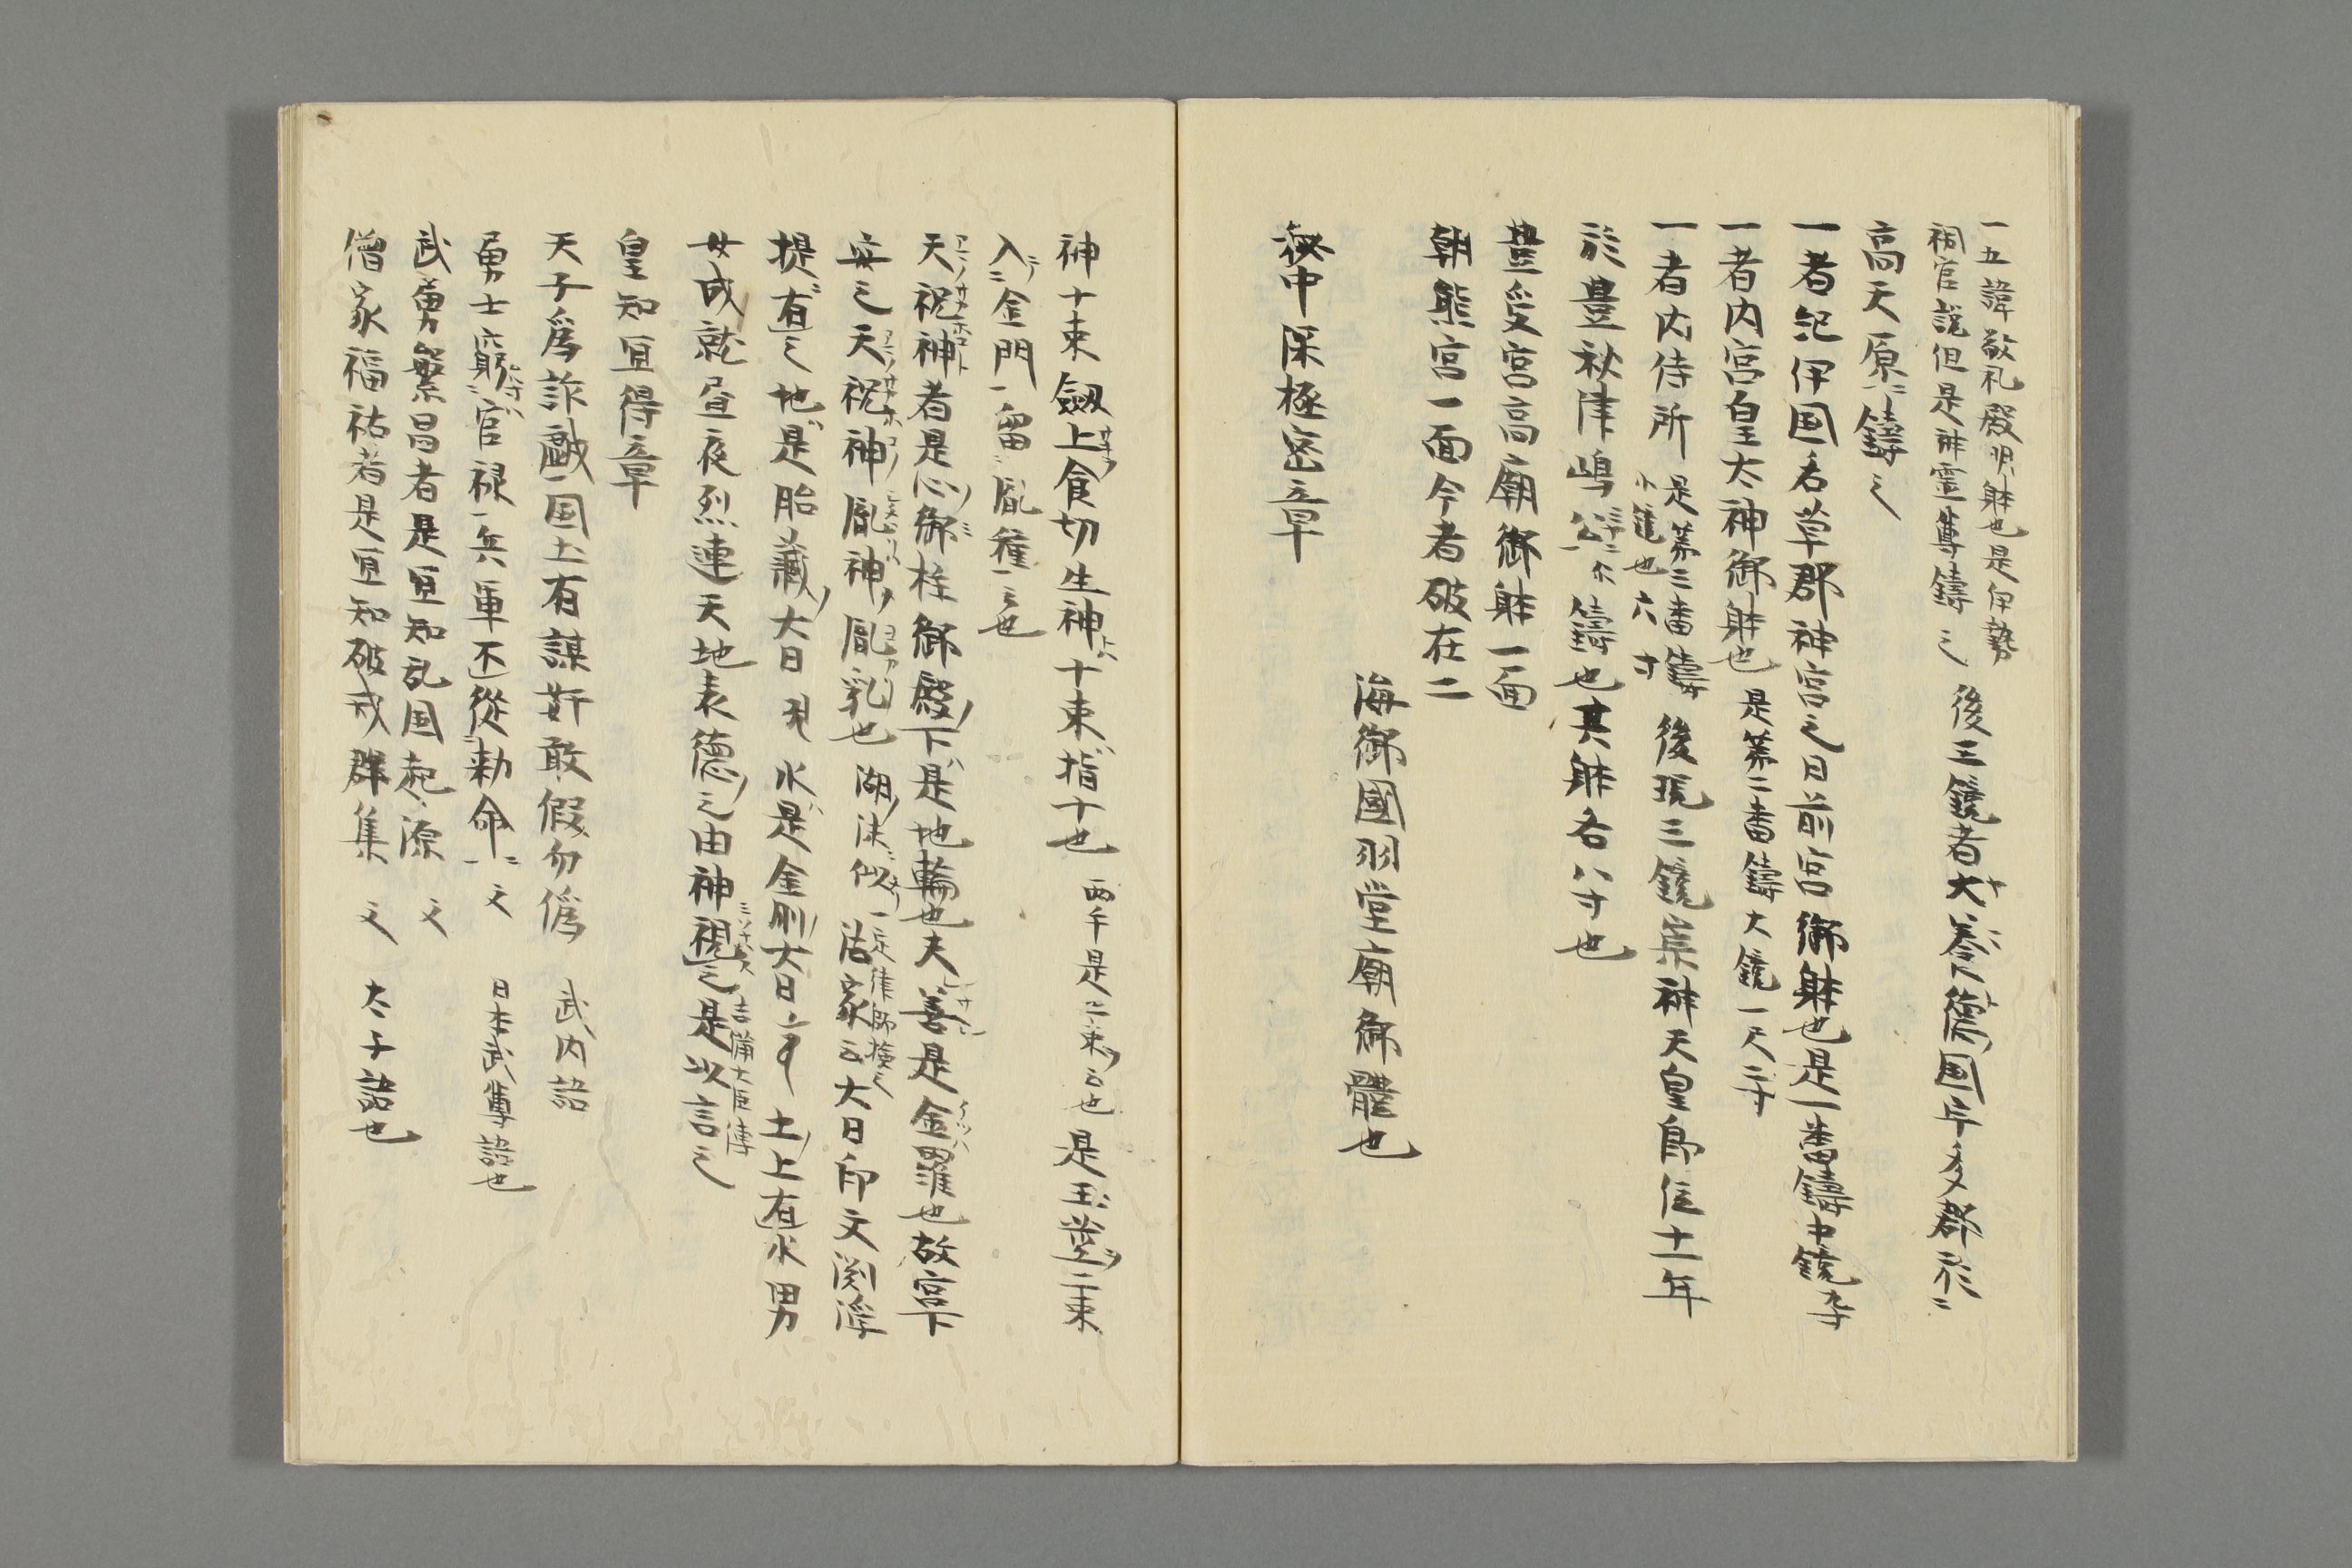 一五諱敬礼殿明躰也是伊勢
祠官説但是神霊尊鑄之 後三鏡者大養徳国宇多郡於
高天原鑄之
一者紀伊国名草郡神宮之日前宮御躰也是一番鑄中鏡九寸
一者内宮皇太神御躰也 是第二番鑄大鏡一尺二寸
一者内侍所 是第三番鑄
小鏡也六寸 後現三鏡崇神天皇即位十一年
於豊秋津嶋鑄也其躰各八寸也
豊受宮高廟御躰一面
朝熊宮一面今者破在二
海御國羽堂廟御體也
秘中深極密章
神十束劔上食切生神十束指十也 両手是二束云也 是玉業二束
入金門留胤種云也
天祝神者是心御柱御殿下是地輪也夫善是金羅也故宮下
安之天祝神胤神胤乳也 湖決似 一定律師授之 浩家云大日印文閻浮
提有之地是胎藏大日 水是金剛大日 土上有水男
女成就昼夜烈連天地表徳之由神視之是以言之 吉備大臣傳
皇知宜得章
天子為詐敵国土有謀奸敢假勿偽 武内語
勇士窮官禄兵軍不從勅命文 日本武尊語也
武勇繁昌者是宜知乱国起源文
僧家福祐者是宜知破戒群集文 太子語也